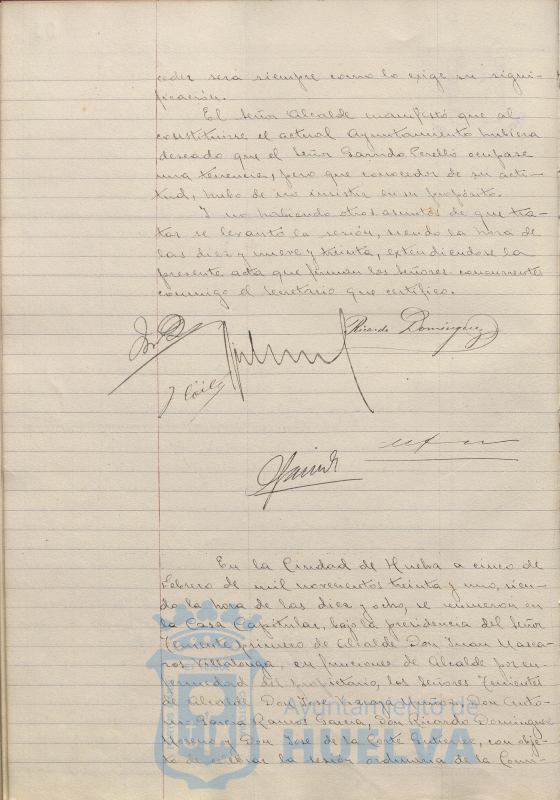 ceder será siempre como lo exige su signi-
ficación.
El Señor Alcalde manifestó que al
constituirse el actual Ayuntamiento hubiera
deseado que el Señor Garrido Perelló ocupase
una tenencia, pero que conocedor de su acti-
tud, hubo de no insistir en su propósito.
Y no habiendo otros asuntos de que tra-
tar se levantó la sesión, siendo la hora de
las diez y nueve y treinta, extendiendose la
presente acta que firman los Señores concurrentes
conmigo el Secretario que certifico.
Ricardo Dominguez
En la Ciudad de Huelva a cinco de
Febrero de mil novecientos treinta y uno, sien-
do la hora de las diez y ocho, se reunieron en
la Casa Capitular, bajo la presidencia del Señor
Teniente primero de Alcalde Don Juan Masca-
ros Villalonga, en funciones de Alcalde por en-
fermedad del propietario, los Señores Tenientes
de Alcalde Don José Nogora Muñoz, Don Anto-
nio Garcia Ramos Garcia, Don Ricardo Dominguez
Moreno y Don José de la Corte Gutierrez, con obje-
to de celebrar la sesión ordinaria de la Comi-
Ayuntamiento de
HUELVA